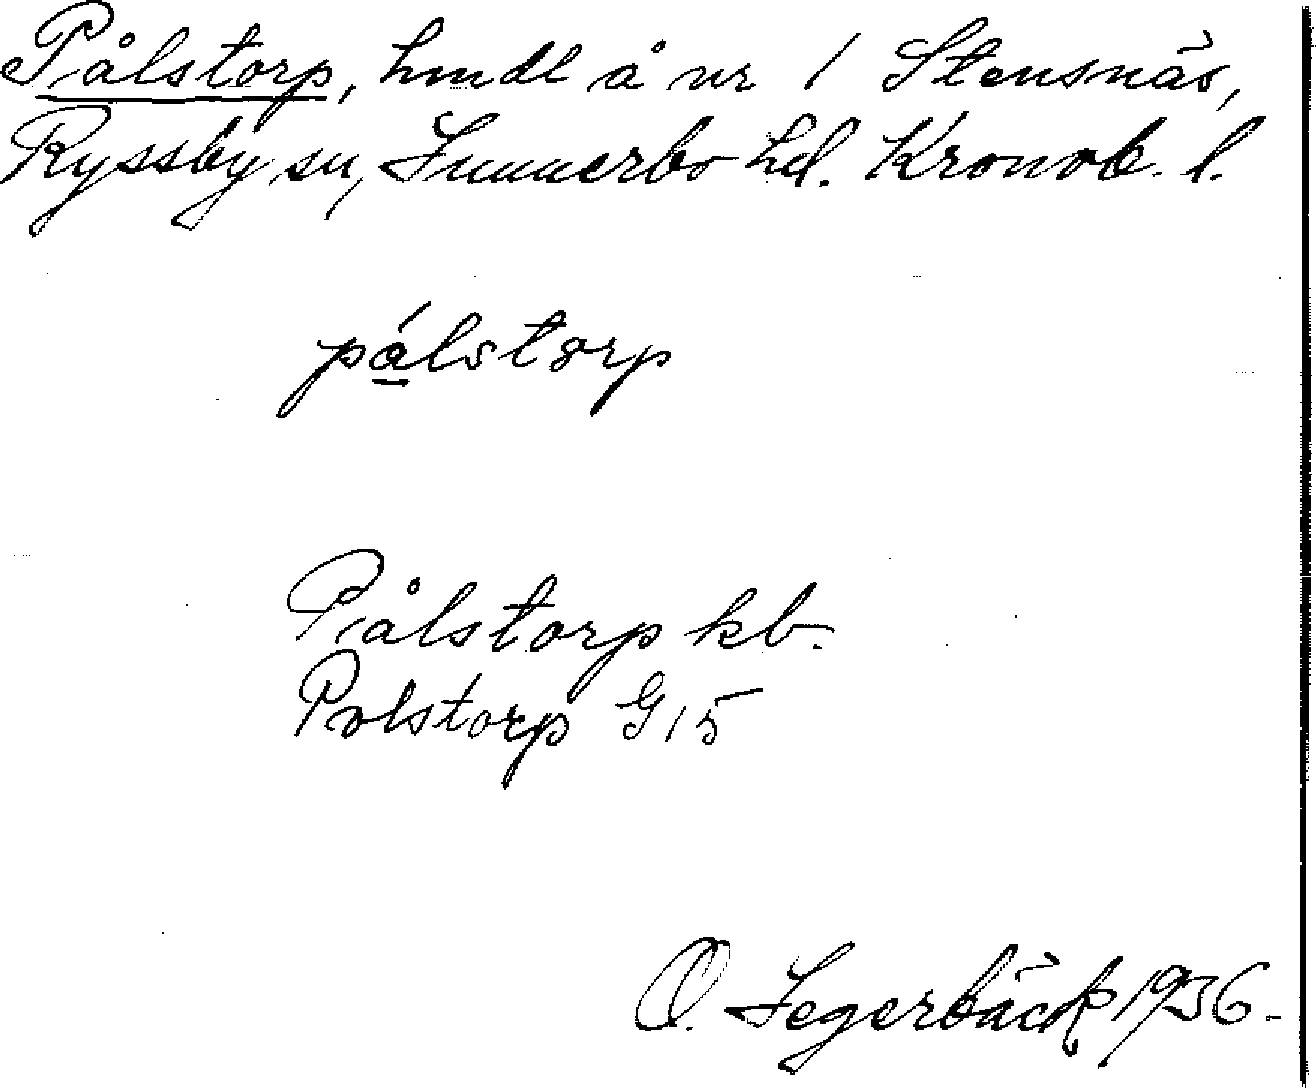 Pålstorp, hmdl å nr 1 Stensnäs,
Ryssby sn, Sunnerbo hd. Kronob. l.
pá̱lstorp
Pålstorp kb.
Polstorp G 15
O. Segerbäck 1936.